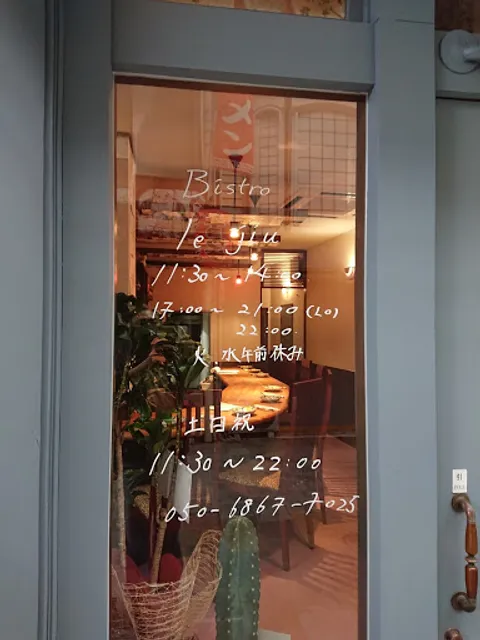 メン
Bistro
le jiu
11:30～14:00
17:00～21:00(LO)
22:00
火.水午前休み
土日祝
11:30～22:00
050-6867-7025
引